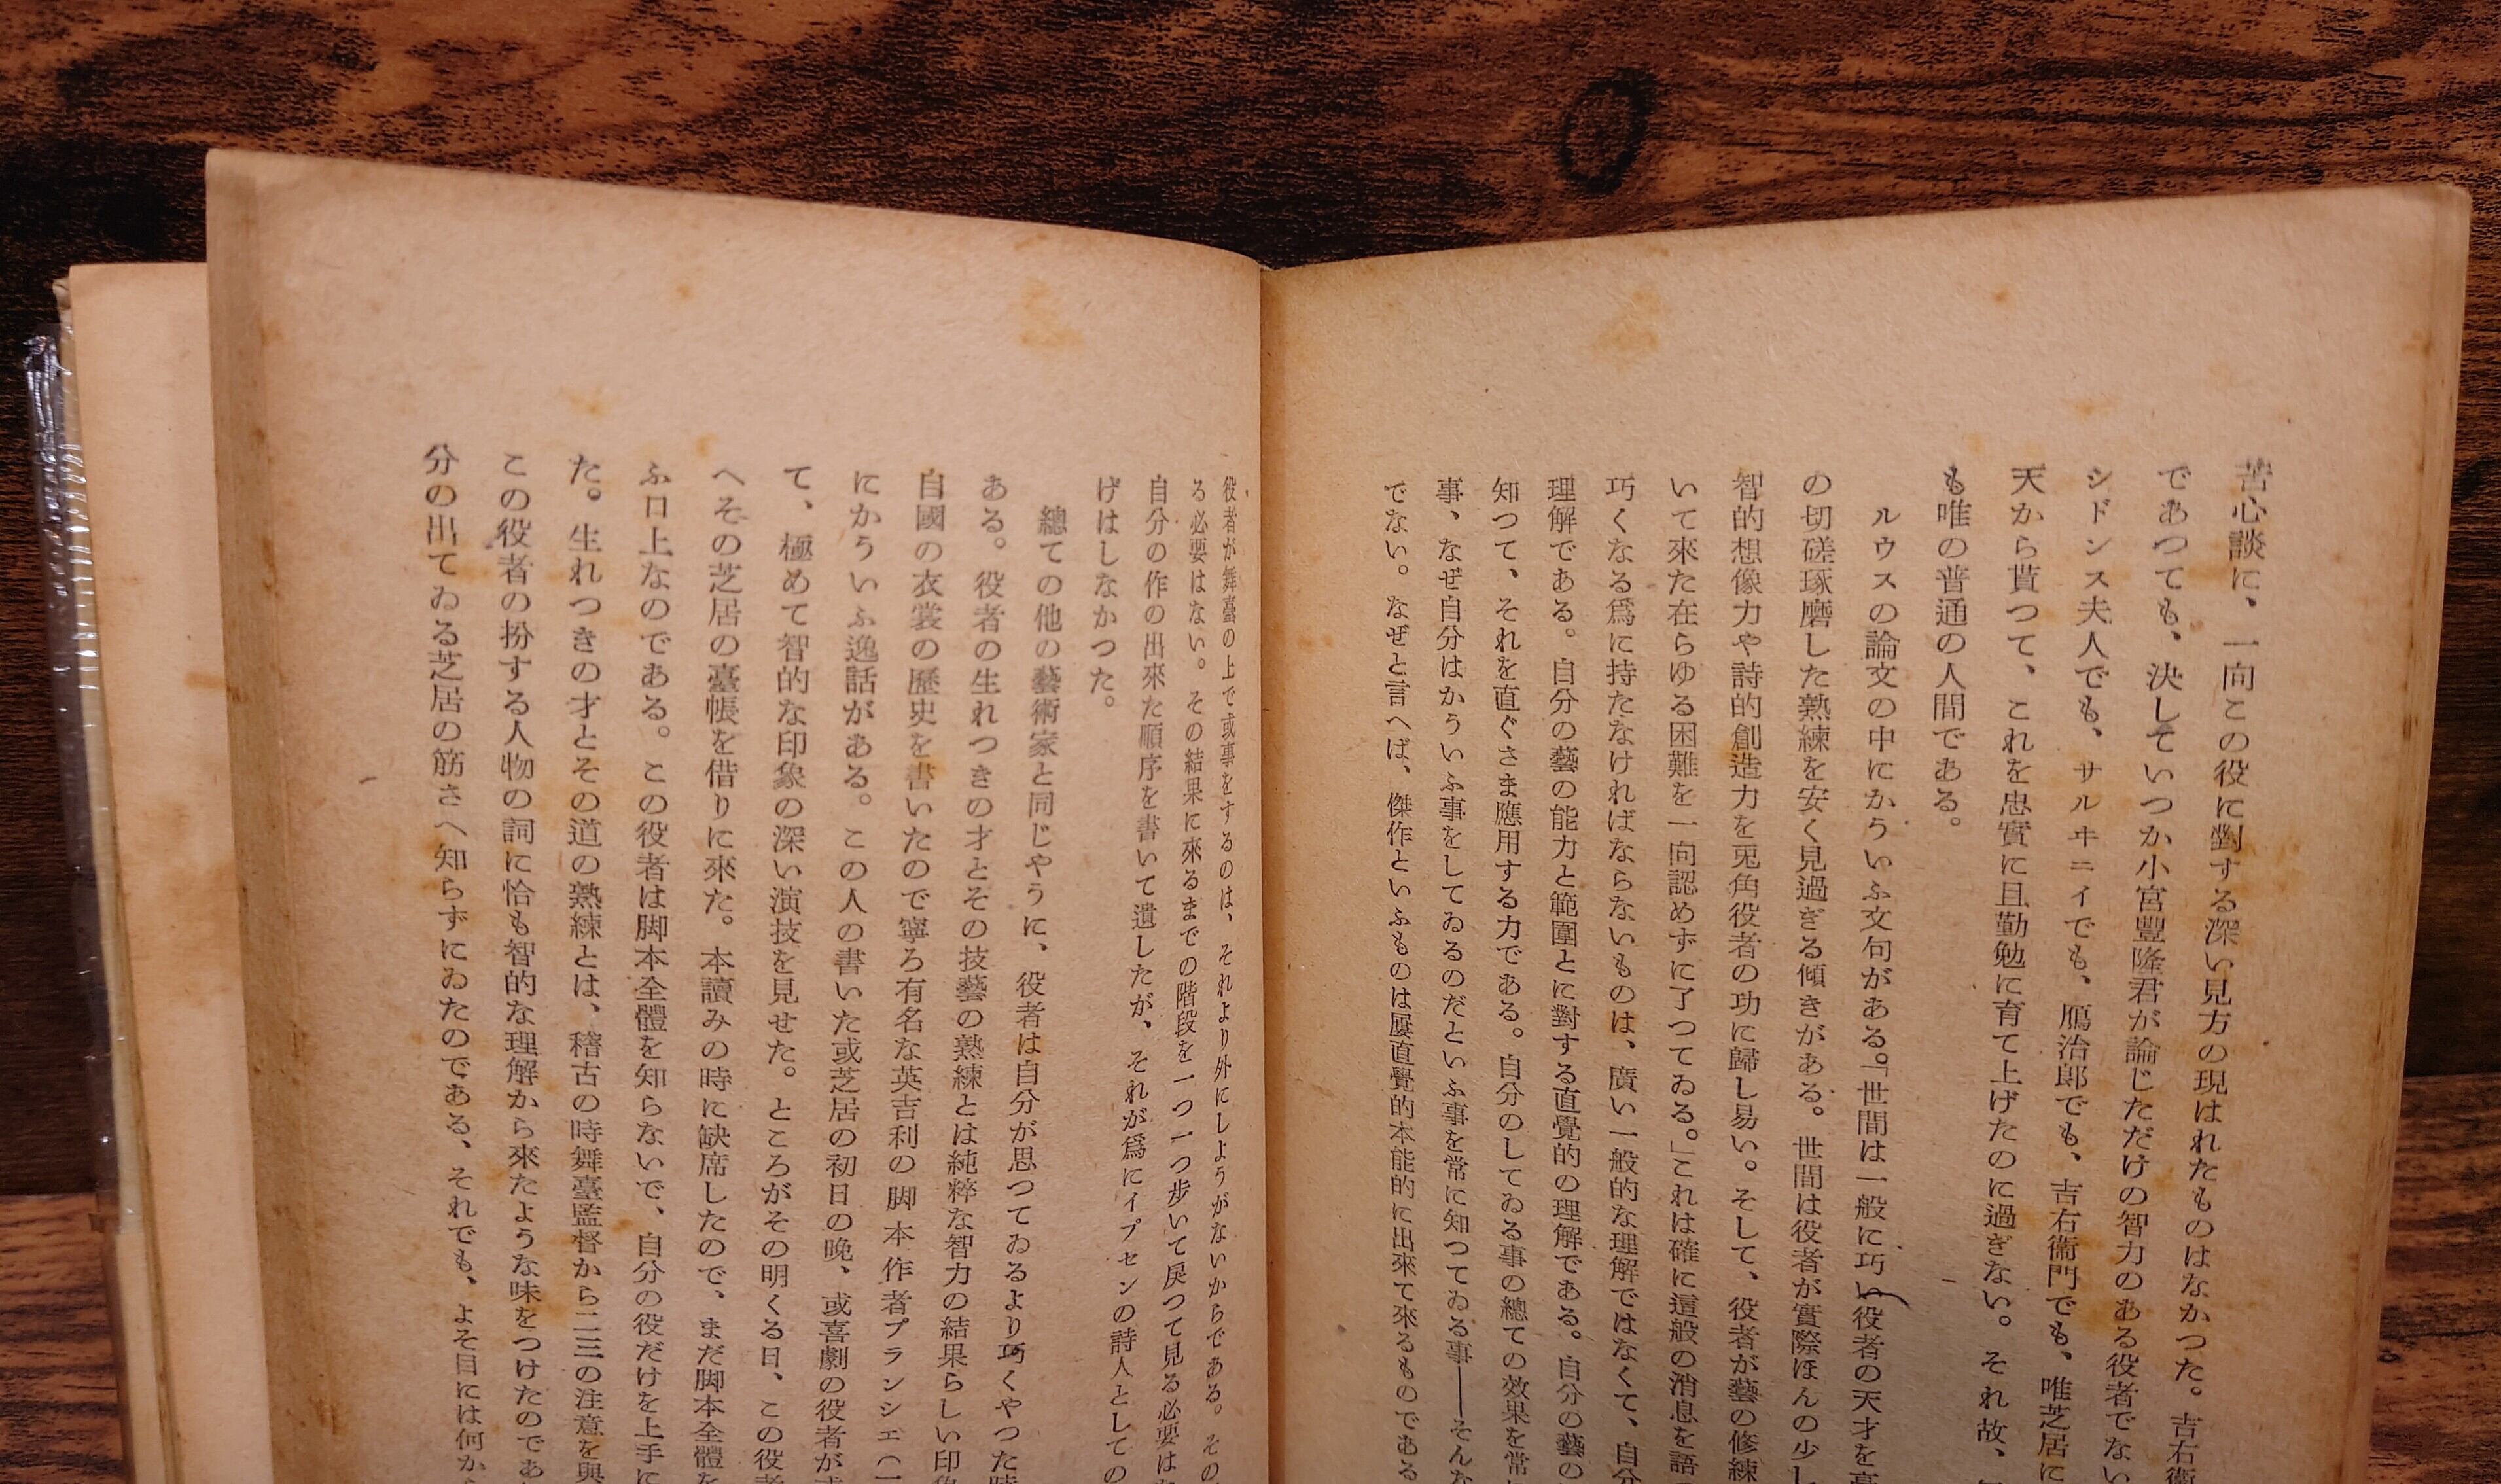 苦心談に、一向この役に對する深い見方の現はれたものはなかつた。吉右衞
であつても、決していつか小宮豐隆君が論じただけの智力のある役者でない
シドンス夫人でも、サルヰニイでも、鴈治郎でも、吉右衞門でも、唯芝居に
天から貰つて、これを忠實に且勤勉に育て上げたのに過ぎない。それ故、
も唯の普通の人間である。
ルウスの論文の中にかういふ文句がある。「世間は一般に巧い役者の天才を
の切磋琢磨した熟練を安く見過ぎる傾きがある。世間は役者が實際ほんの少し
智的想像力や詩的創造力を兎角役者の功に歸し易い。そして、役者が藝の修練
いて來た在らゆる困難を一向認めずに了つてゐる。」これは確に這般の消息を語
巧くなる爲に持たなければならないものは、廣い一般的な理解ではなくて、自分
理解である。自分の藝の能力と範圍とに對する直覺的の理解である。自分の藝の
知つて、それを直ぐさま應用する力である。自分のしてゐる事の總ての效果を常
事、なぜ自分はかういふ事をしてゐるのだといふ事を常に知つてゐる事――そんな
でない。なぜと言へば、傑作といふものは屢直覺的本能的に出來て來るものである
役者が舞臺の上で或事をするのは、それより外にしようがないからである。その
る必要はない。その結果に來るまでの階段を一つ一つ歩いて戻つて見る必要は
自分の作の出來た順序を書いて遺したが、それが爲にイプセンの詩人としての
げはしなかつた。
總ての他の藝術家と同じやうに、役者は自分が思つてゐるより巧くやつた時
ある。役者の生れつきの才とその技藝の熟練とは純粹な智力の結果らしい印象
自國の衣裳の歷史を書いたので寧ろ有名な英吉利の脚本作者プランシェ(一
にかういふ逸話がある。この人の書いた或芝居の初日の晩、或喜劇の役者が
て、極めて智的な印象の深い演技を見せた。ところがその明くる日、この役者
へその芝居の臺帳を借りに來た。本讀みの時に缺席したので、まだ脚本全體を
ふ口上なのである。この役者は脚本全體を知らないで、自分の役だけを上手に
た。生れつきの才とその道の熟練とは、稽古の時舞臺監督から二三の注意を與
この役者の扮する人物の詞に恰も智的な理解から來たような味をつけたのであ
分の出てゐる芝居の筋さへ知らずにゐたのである、それでも、よそ目には何か